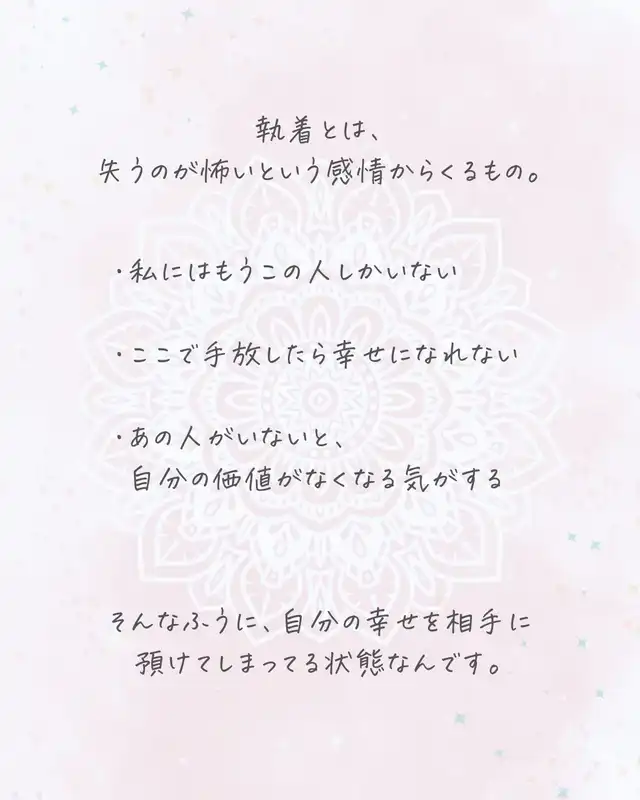 執着とは、
失うのが怖いという感情からくるもの。
・私にはもうこの人しかいない
・ここで手放したら幸せになれない
・あの人がいないと、
自分の価値がなくなる気がする
そんなふうに、自分の幸せを相手に
預けてしまってる状態なんです。